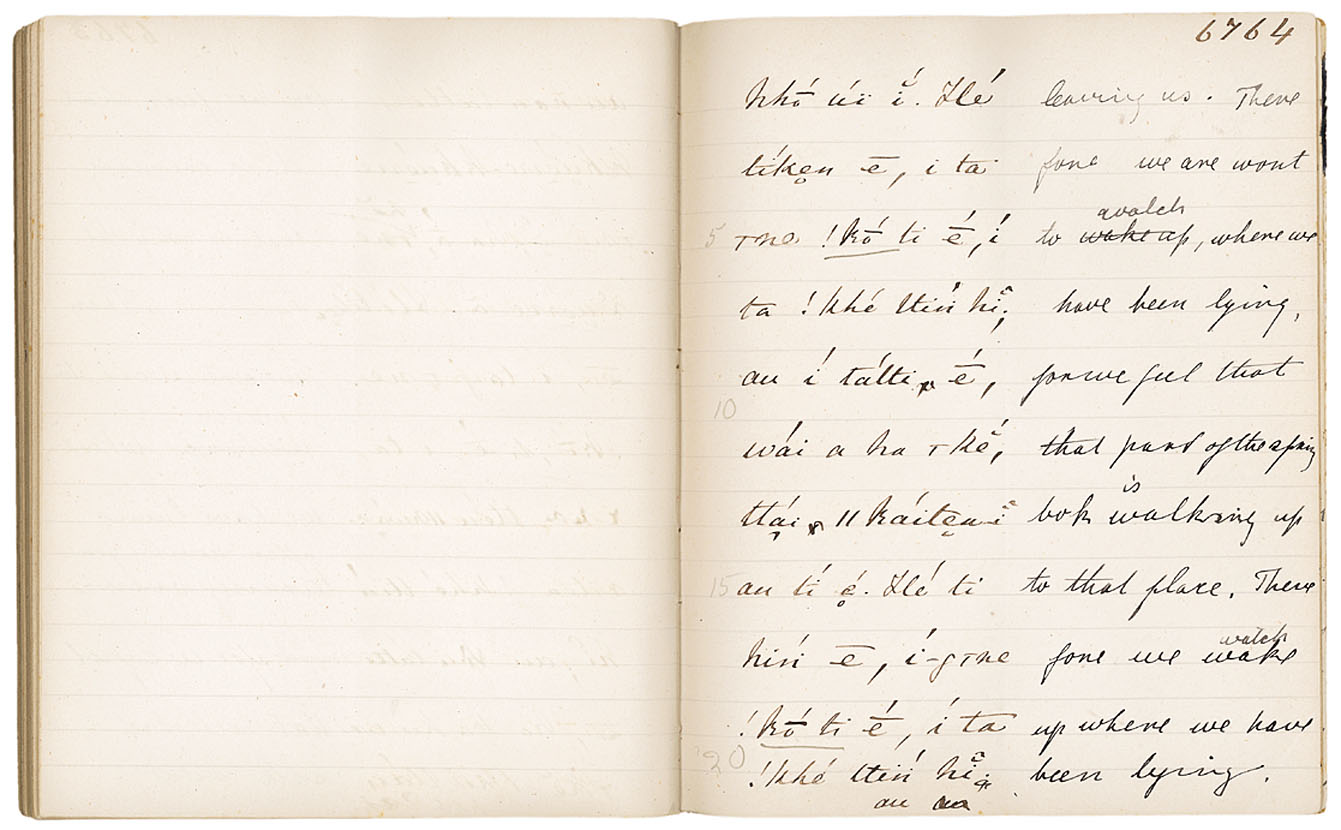 6764
hhō úï ĭ. Hé leaving us. There
tíken ē, i ta fore we are wont
5 !kō ti é, í to wake up, where we
awatch
ta !khé ttiń hĭ; have been lying,
au í tátti é, for we feel that
10
wái a ha ké, that part of the spring
ttái ǁ káiten ĭ bok is walking up
15 au tí é. Hé ti to that place. There
hiń ē, í-g ne fore we wake
watch
!kō ti é, í ta up where we have
20 !khé ttiń hĭ been lying.
au